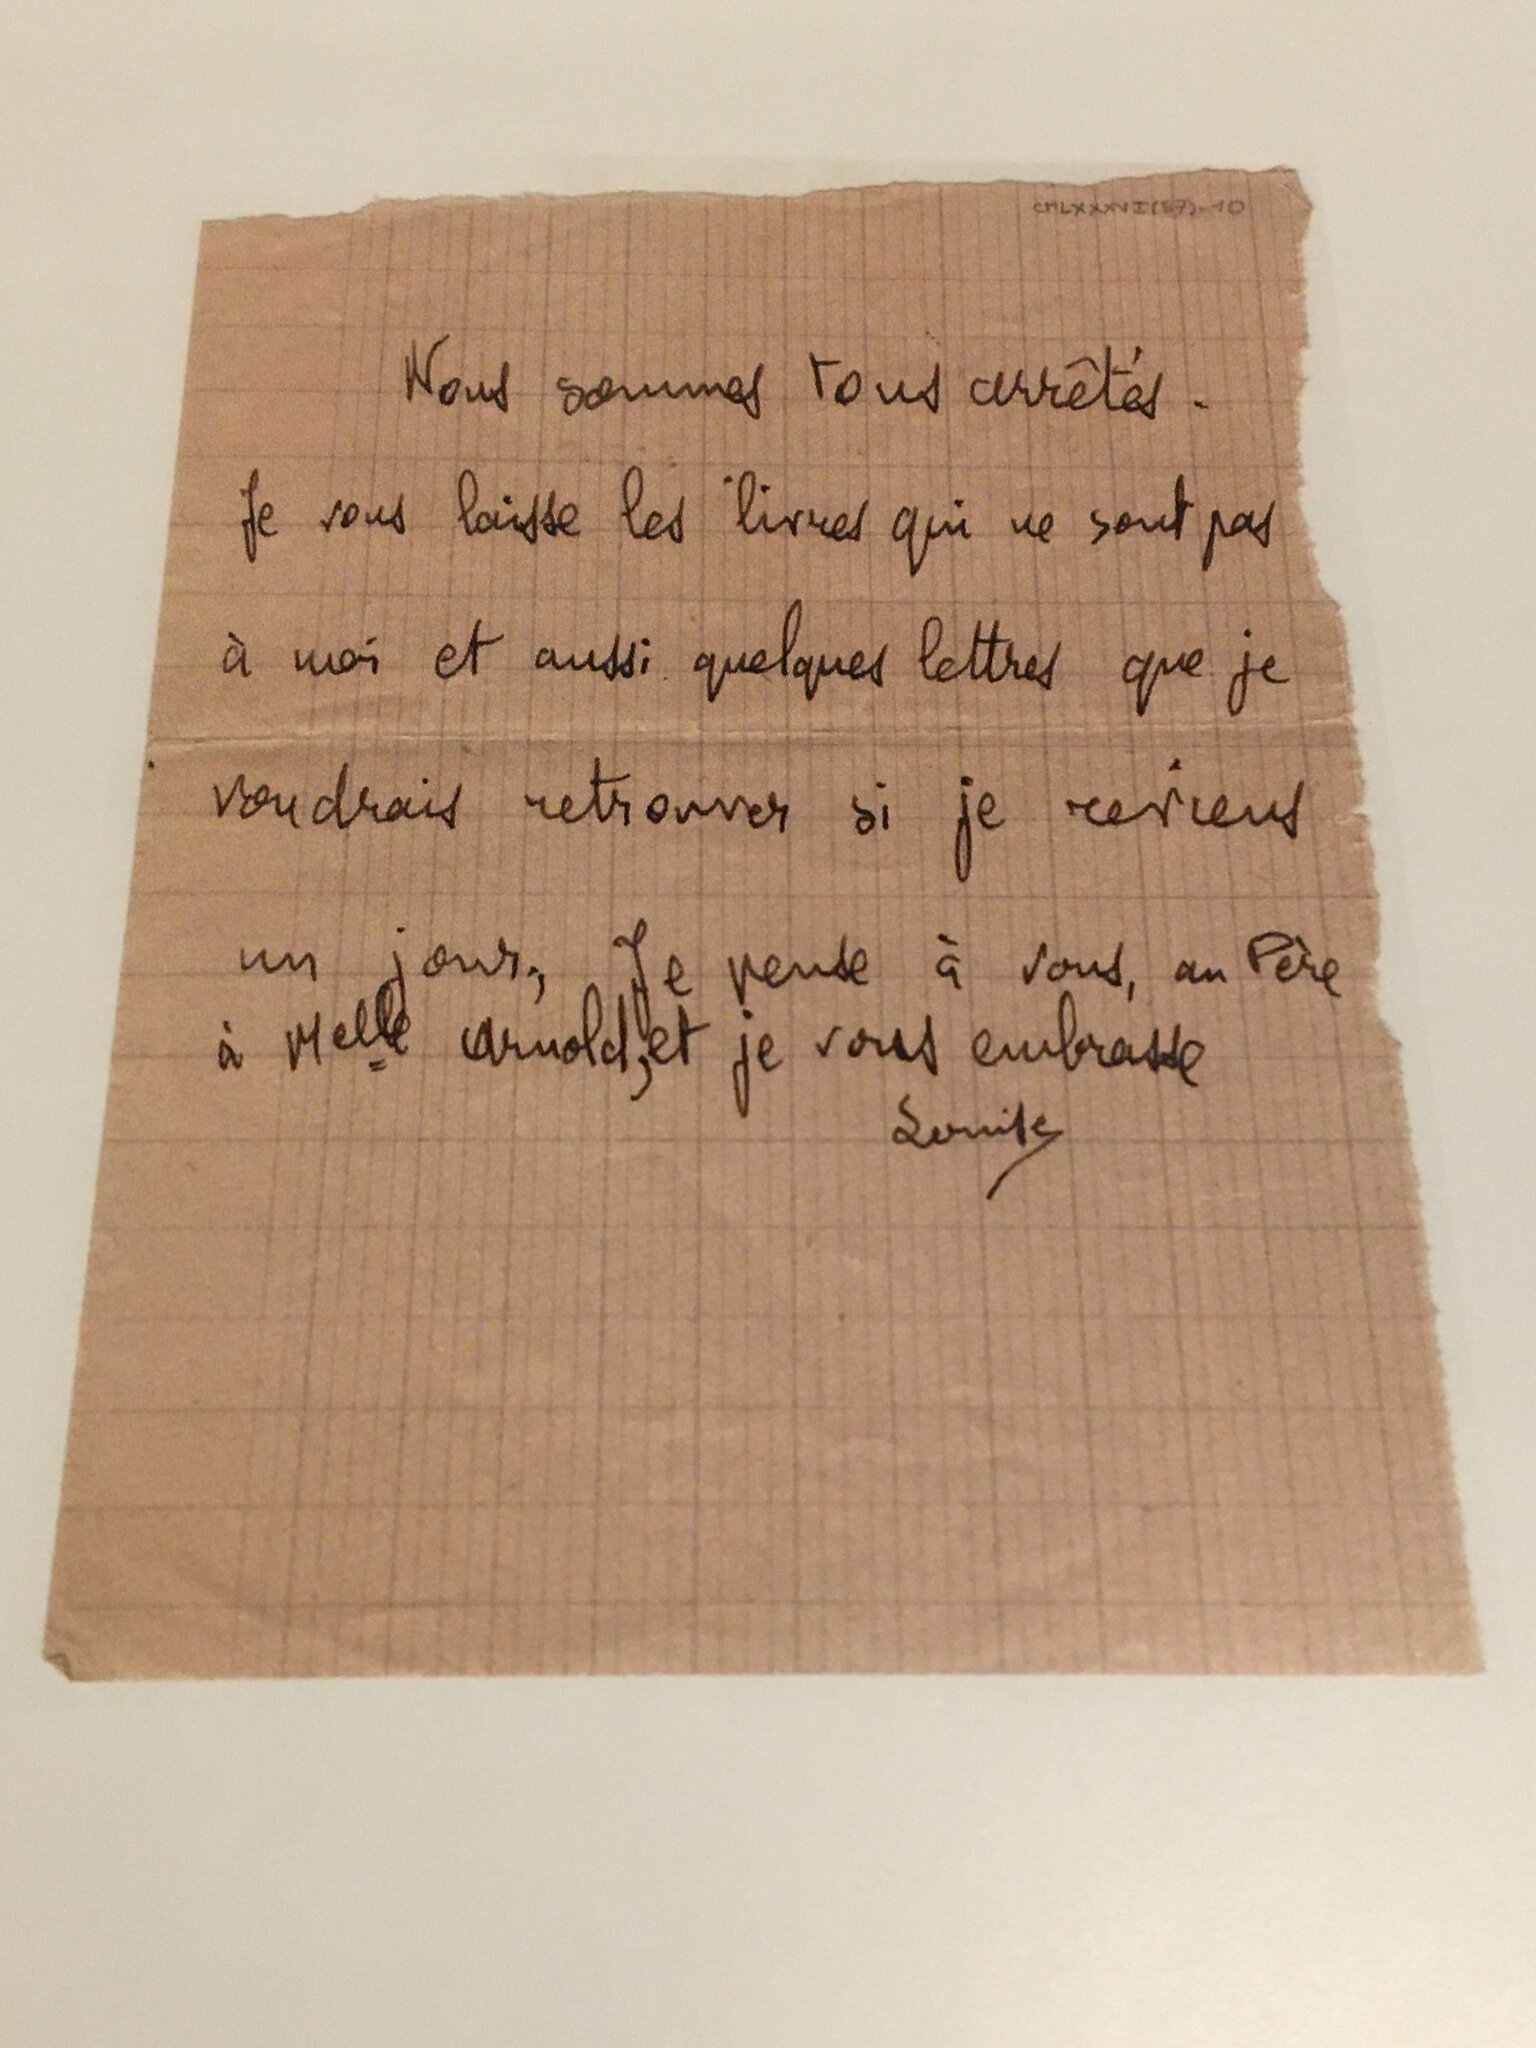 CMLXXXVI(57)-10
Nous sommes tous arrêtés.
Je vous laisse les livres qui ne sont pas
à moi et aussi quelques lettres que je
voudrais retrouver si je reviens
un jour, Je pense à vous, au Père
à Melle Arnold, et je vous embrasse
Louise